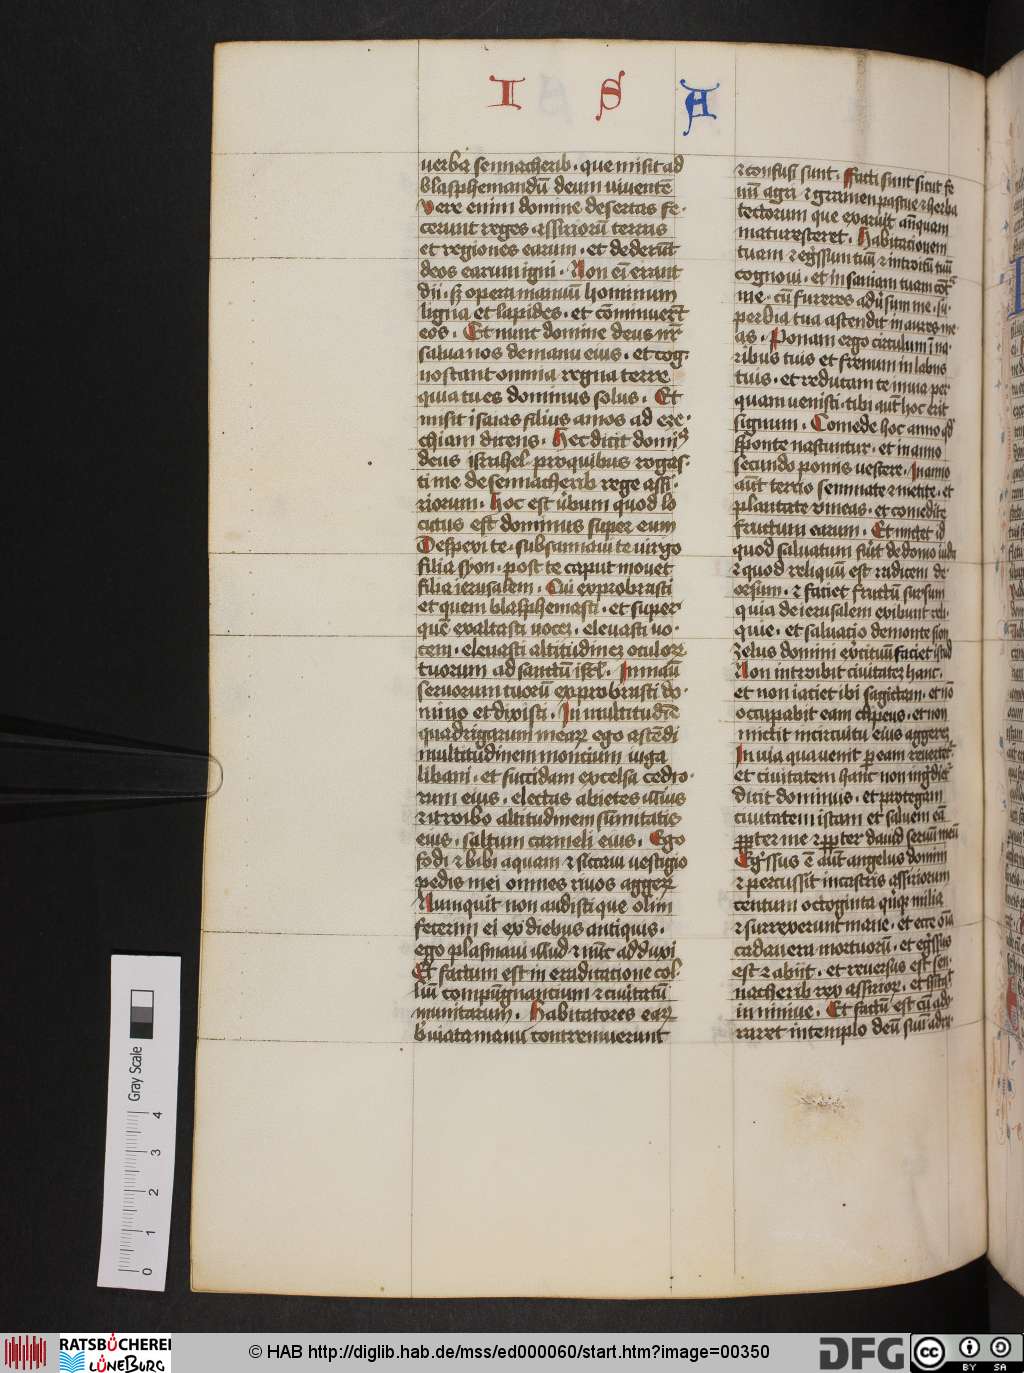 I S A
verba sennacherib · que misit ad
blasphemandū deum uiuentē
vere enim domine desertas fe-
cerunt reges assirioru terras
et regiones earum · et dederūt
deos earum igni · Non eī erant
dii · sꝫ opera manuū hominum
ligna et lapides · et cōminuerūt
eos · Et nunc domine deus nr̄
salua nos de manu eius · et cog-
noscant omnia regna terre
quia tu es dominus solus · Et
misit isaias filius amos ad eze-
chiam dicens · Hec dicit domiꝰ
deus israhel pro quibus rogas-
ti me de sennacherib rege assi-
riorum · hoc est ūbum quod lo
cutus est dominus super eum
Despexit te · subsannauit te uirgo
filia syon · post te caput mouet
filia ierusalem · Cui exprobrasti
et quem blasphemasti · et super
quē exaltasti uocez · eleuasti uo-
cem · eleuasti altitudinez oculoꝝ
tuorum ad sanctū isrl · In manū
seruorum tuorū exprobrasti do-
mino et dixisti · In multitudīe
quadrigarum mearꝝ ego ascēdi
multitudinem moncium iuga
libani · et succidam excelsa cedro-
rum eius · electas abietes illius
et introibo altitudinem sūmitatis
eius · saltum carmeli eius · Ego
fodi et bibi aquam et siccaui uestigio
pedis mei omnes riuos aggerꝝ
Numquit non audisti que olim
fecerim ei ex diebus antiquis ·
ego plasmaui illud et nūc adduxi
Et factum est in eradicatione col-
liū compūgnancium et ciuitatū
munitarum · Habitatores eaꝝ
b̄uiata manu contremuerunt
et confusi sunt · Facti sunt sicut fe
nū agri et gramen pascue et herba
tectorum que exaruit an̄quam
maturesceret · Habitacionem
tuam et eḡssum tuū et introitū tuū
cognoui · et insaniam tuam cōtͣ
me · cū fureres adūsum me · su-
perbia tua ascendit in aures me
as · Ponam ergo circulum ī na-
ribus tuis et frenum in labiis
tuis · et reducam te in uia per
quam uenisti · tibi aūt hoc erit
signum · Comede hoc anno q̄
sponte nascuntur · et in anno
secundo pomis uescere · In anno
aūt tercio seminate et metite · et
plantate vineas · et comedite
fructum earum · Et mittet id
quod saluatum fūit de domo iuda
et quod reliquū est radicem de-
orsum · et faciet fructū sursum
quia de ierusalem exibunt reli-
quie · et saluacio de monte sion
Zelus domini ex̄cituū faciet istud
Non introibit ciuitatez hanc ·
et non iaciet ibi sagictam · et nō
occupabit eam clipeus · et non
mictit in circuitu eius aggerez
In uia qua uenit p̱ eam reuertetͬ
et ciuitatem hanc non ingr̄dietͬ
dicit dominus · et protegam
ciuitatem istam et saluem eā
ꝓpter me et ꝓpter dauid seruū meū
Eg̃ssus ē aūt angelus domini
et percussit in castris assiriorum
centum octoginta qūiqꝫ milia
et surrexerunt mane · et ecce oīa
cadauera mortuorū · et eg̃ssus
est et abiit · et reuersus est sen-
nacherib rex assirioꝝ · et hitauͭ
in niniue · Et factū est cū ado-
raret in templo deū suū adra-
Gray Scale
0 1 2 3 4
RATSBÜCHEREI
LÜNEBURG
© HAB http://diglib.hab.de/mss/ed000060/start.htm?image=00350
DFG
cc BY SA